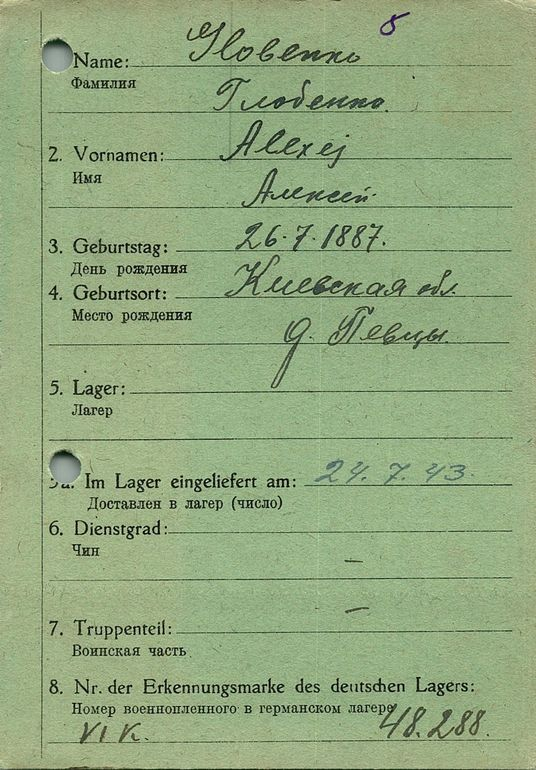 б
Name: Globenko
Фамилия
Глобенко
2. Vornamen: Alexej
Имя
Алексей
3. Geburtstag: 26.7.1887.
День рождения
4. Geburtsort: Киевская обл.
Место рождения
д. Певцы.
5. Lager:
Лагер
5a. Im Lager eingeliefert am: 24.7.43.
Доставлен в лагер (число)
6. Dienstgrad:
Чин
—
—
7. Truppenteil:
Воинская часть
8. Nr. der Erkennungsmarke des deutschen Lagers:
Номер военнопленного в германском лагере
VI K. 48.288.